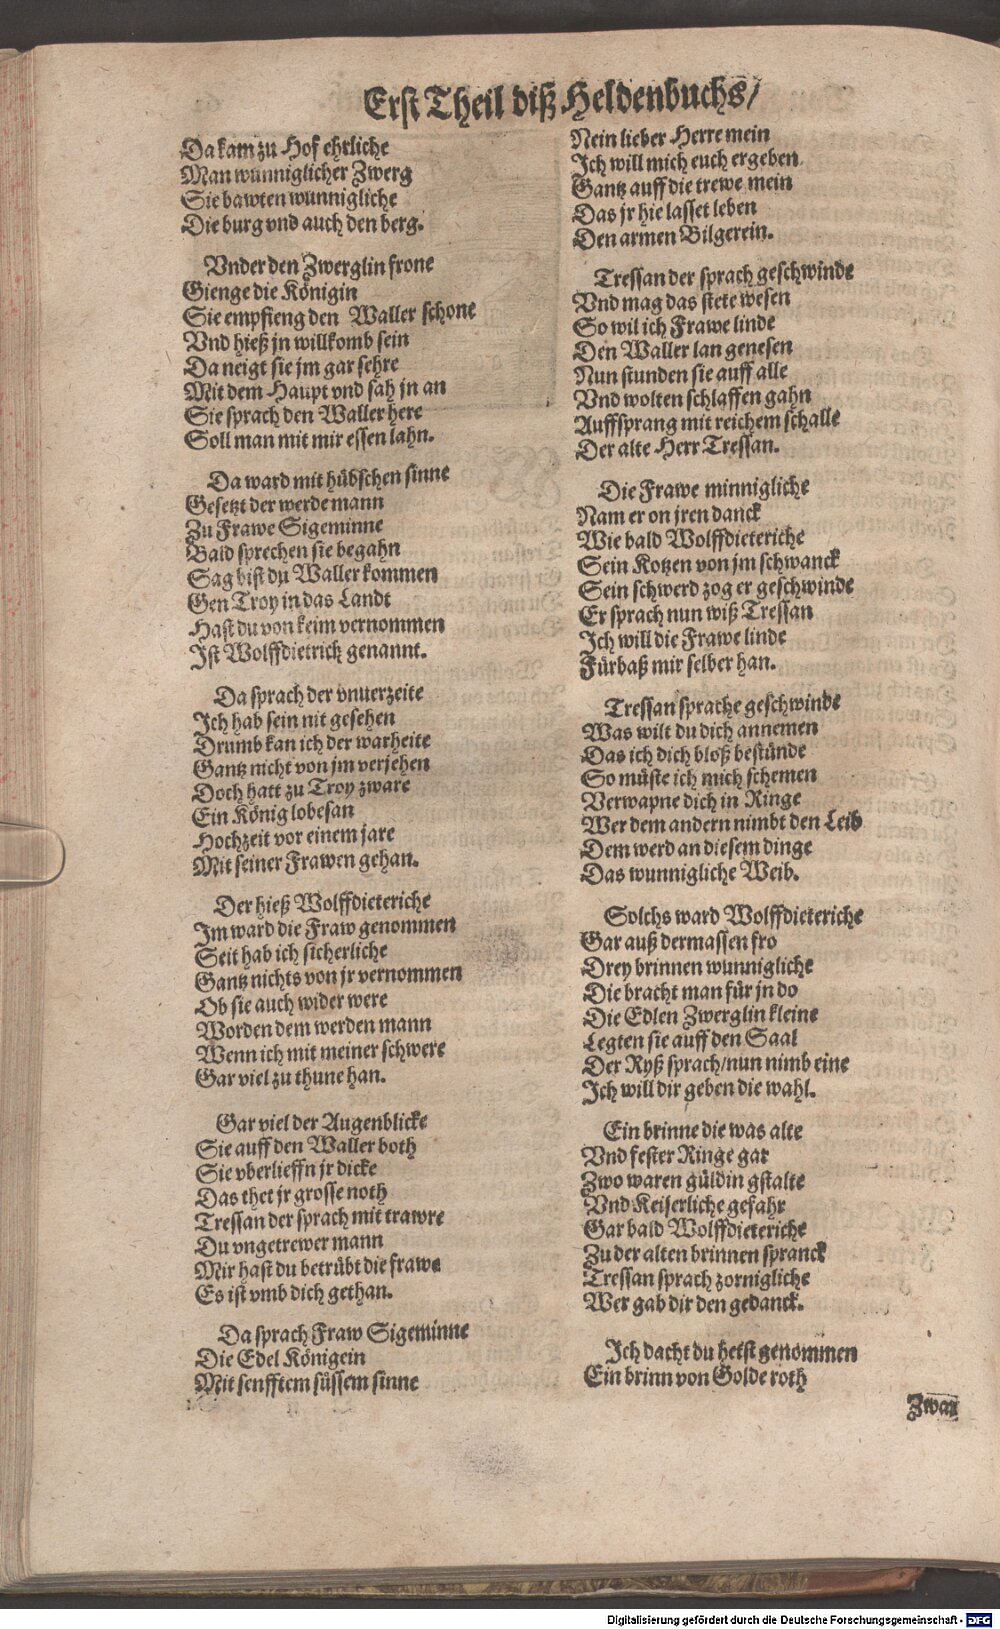 Erst Theil diß Heldenbuchs/
Da kam zu Hof ehrliche
Man wunniglicher Zwerg
Sie bawten wunnigliche
Die burg vnd auch den berg.
Vnder den Zwerglin frone
Gienge die Königin
Sie empfieng den Waller schone
Vnd hieß jn willkomb sein
Da neigt sie jm gar sehre
Mit dem Haupt vnd sah jn an
Sie sprach den Waller here
Soll man mit mir essen lahn.
Da ward mit hübschen sinne
Gesetzt der werde mann
Zu Frawe Sigeminne
Bald sprechen sie begahn
Sag bist du Waller kommen
Gen Troy in das Landt
Hast du von keim vernommen
Ist Wolffdietrich genannt.
Da sprach der vnuerzeite
Ich hab sein nit gesehen
Drumb kan ich der warheite
Gantz nicht von jm verjehen
Doch hatt zu Troy zware
Ein König lobesan
Hochzeit vor einem jare
Mit seiner Frawen gehan.
Der hieß Wolffdieteriche
Im ward die Fraw genommen
Seit hab ich sicherliche
Gantz nichts von jr vernommen
Ob sie auch wider were
Worden dem werden mann
Wenn ich mit meiner schwere
Gar viel zu thune han.
Gar viel der Augenblicke
Sie auff den Waller both
Sie vberlieffn jr dicke
Das thet jr grosse noth
Tressan der sprach mit trawre
Du vngetrewer mann
Mir hast du betrübt die frawe
Es ist vmb dich gethan.
Da sprach Fraw Sigeminne
Die Edel Königein
Mit senfftem süssem sinne
Nein lieber Herre mein
Ich will mich euch ergeben
Gantz auff die trewe mein
Das jr hie lasset leben
Den armen Bilgerein.
Tressan der sprach geschwinde
Vnd mag das stete wesen
So wil ich Frawe linde
Den Waller lan genesen
Nun stunden sie auff alle
Vnd wolten schlaffen gahn
Auffsprang mit reichem schalle
Der alte Herr Tressan.
Die Frawe minnigliche
Nam er on jren danck
Wie bald Wolffdieteriche
Sein Kotzen von jm schwanck
Sein schwerd zog er geschwinde
Er sprach nun wiß Tressan
Ich will die Frawe linde
Fürbaß mir selber han.
Tressan sprache geschwinde
Was wilt du dich annemen
Das ich dich bloß bestünde
So müste ich mich schemen
Verwapne dich in Ringe
Wer dem andern nimbt den Leib
Dem werd an diesem dinge
Das wunnigliche Weib.
Solchs ward Wolffdieteriche
Gar auß dermassen fro
Drey brinnen wunnigliche
Die bracht man für jn do
Die Edlen Zwerglin kleine
Legten sie auff den Saal
Der Ryß sprach/nun nimb eine
Ich will dir geben die wahl.
Ein brinne die was alte
Vnd fester Ringe gar
Zwo waren güldin gstalte
Vnd Keiserliche gefahr
Gar bald Wolffdieteriche
Zu der alten brinnen spranck
Tressan sprach zornigliche
Wer gab dir den gedanck.
Ich dacht du hetst genommen
Ein brinn von Golde roth
Zwar
Digitalisierung gefördert durch die Deutsche Forschungsgemeinschaft - DFG